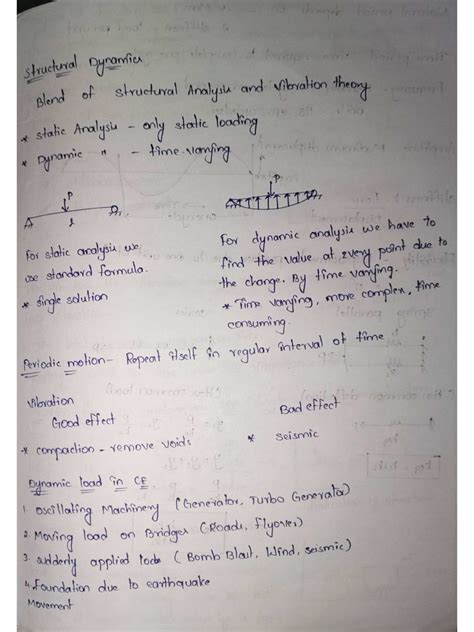 Structural Dynamics
Blend of Structural Analysis and vibration theory
* static Analysis - only static loading
* Dynamic " - time varying
P
l
P
For static analysis we
use standard formula.
* single solution
For dynamic analysis we have to
find the value at every point due to
the change. By time varying.
* Time varying, more complex, time
consuming.
Periodic motion - Repeat itself in regular interval of time
vibration
Good effect
Bad effect
* compaction - remove voids
* seismic
Dynamic load in CE
1. oscillating Machinery (Generator, Turbo Generator)
2. Moving load on Bridges (Roads, flyover)
3. suddenly applied (Bomb Blast, Wind, seismic)
4. Foundation due to earthquake
Movement